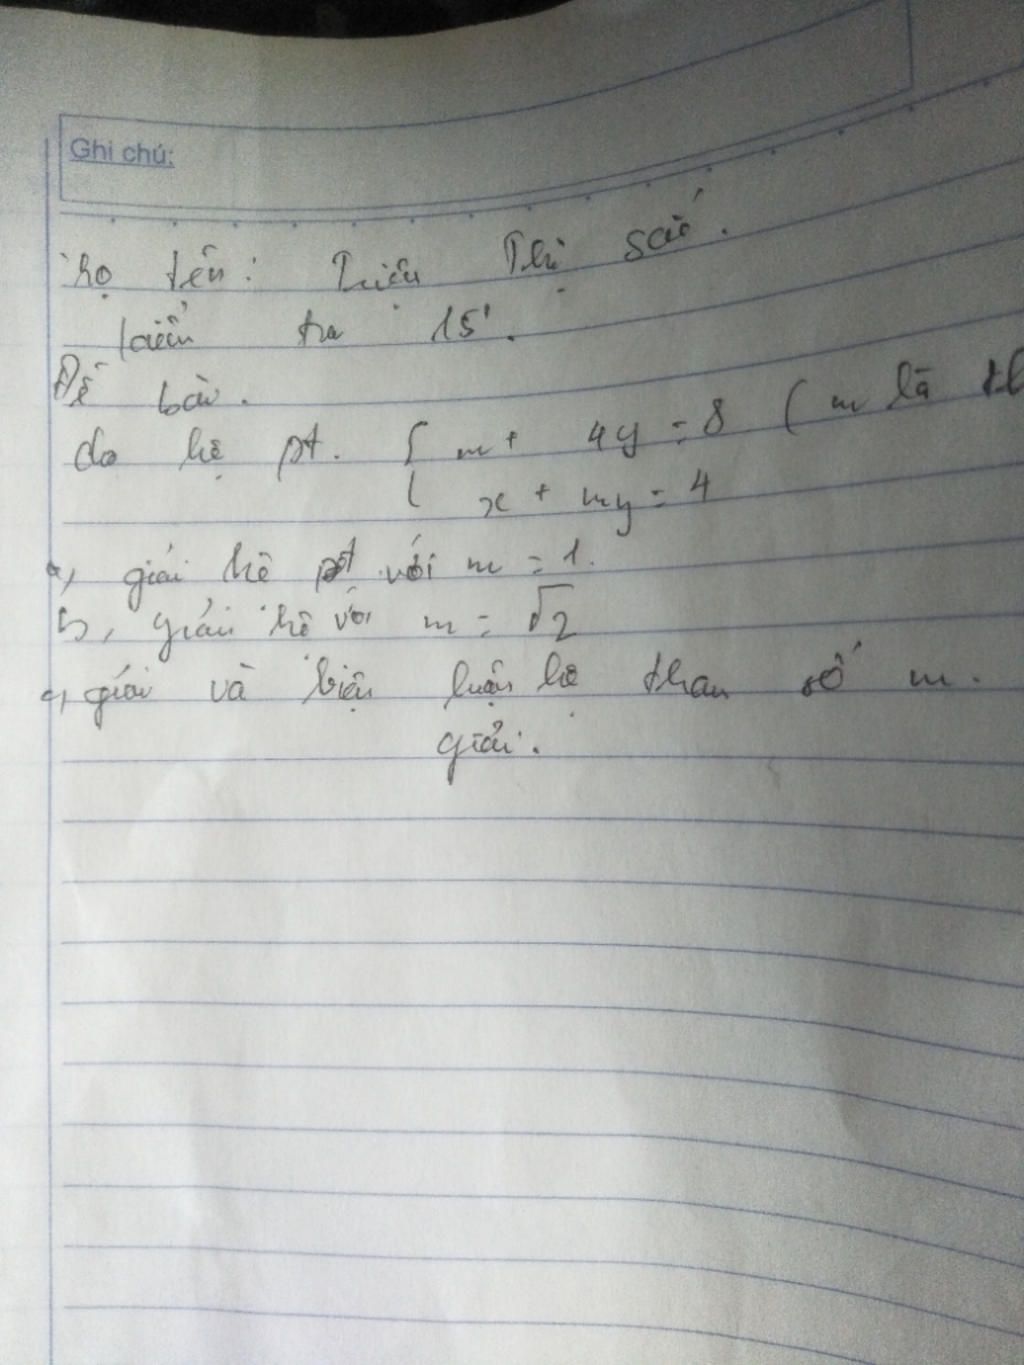 Ghi chú:
họ tên: Triệu Thị
kiểm tra 15'.
Đề bài.
cho hệ pt. { m + 4y = 8 ( m là th
x + my = 4
a, giải hệ pt với m = 1.
b, giải hệ với m = √2
c, giải và biện luận hệ tham số m.
giải.